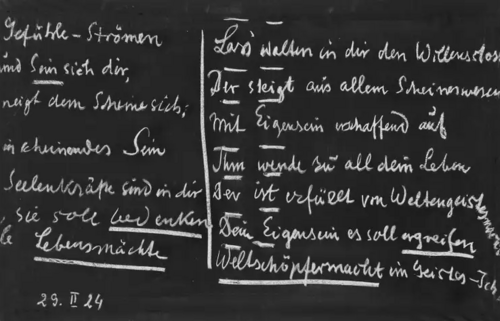 Gefühle-Strömen
und Sein sich dir,
neigt dem Scheine sich;
in scheinendes Sein
Seelenkräfte sind in dir
, sie soll bedenken
Lebensmächte
29. II 24
Lass walten in dir den Willensstoss
Der steigt aus allem Scheineswesen
Mit Eigensein erschaffend auf
Ihm wende zu all dein Leben
Der ist erfüllt von Weltengeist
Dein Eigensein es soll ergreifen
Weltschöpfermacht im Geistes-Ich